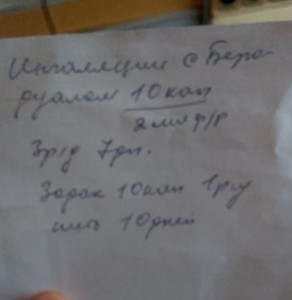 Ингаляции с Беро-
дуалом 10 кап
2 мл ф/р
3р/д 7дн.
Зодак 10 кап 1 р/у
10 дней